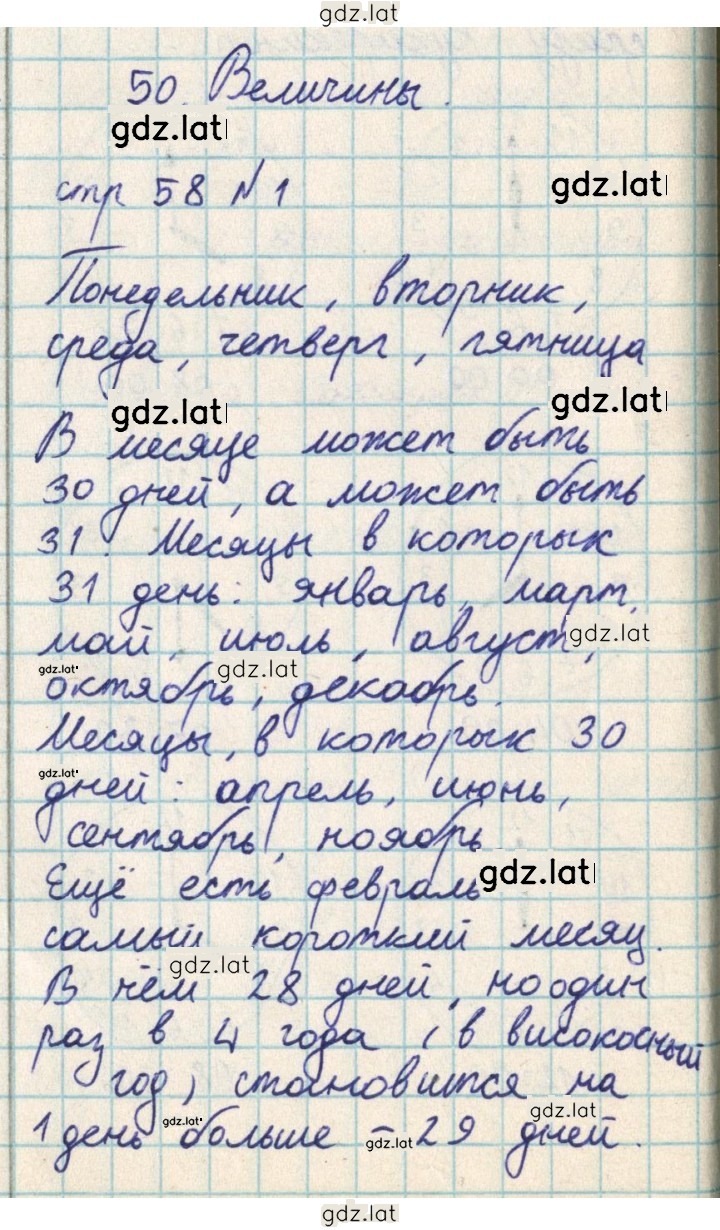 gdz.lat
50. Величины.
gdz.lat
стр 58 №1
gdz.lat
Понедельник, вторник,
среда, четверг, пятница
gdz.lat
gdz.lat
В месяце может быть
30 дней, а может быть
31. Месяцы в которых
31 день: январь, март,
май, июль, август,
gdz.lat
gdz.lat
gdz.lat
октябрь, декабрь.
Месяцы, в которых 30
gdz.lat
дней: апрель, июнь,
сентябрь, ноябрь
Ещё есть февраль
gdz.lat
самый короткий месяц.
gdz.lat
В нём 28 дней, но один
раз в 4 года (в високосный
год) становится на
gdz.lat
1 день больше – 29 дней.
gdz.lat
gdz.lat
gdz.lat